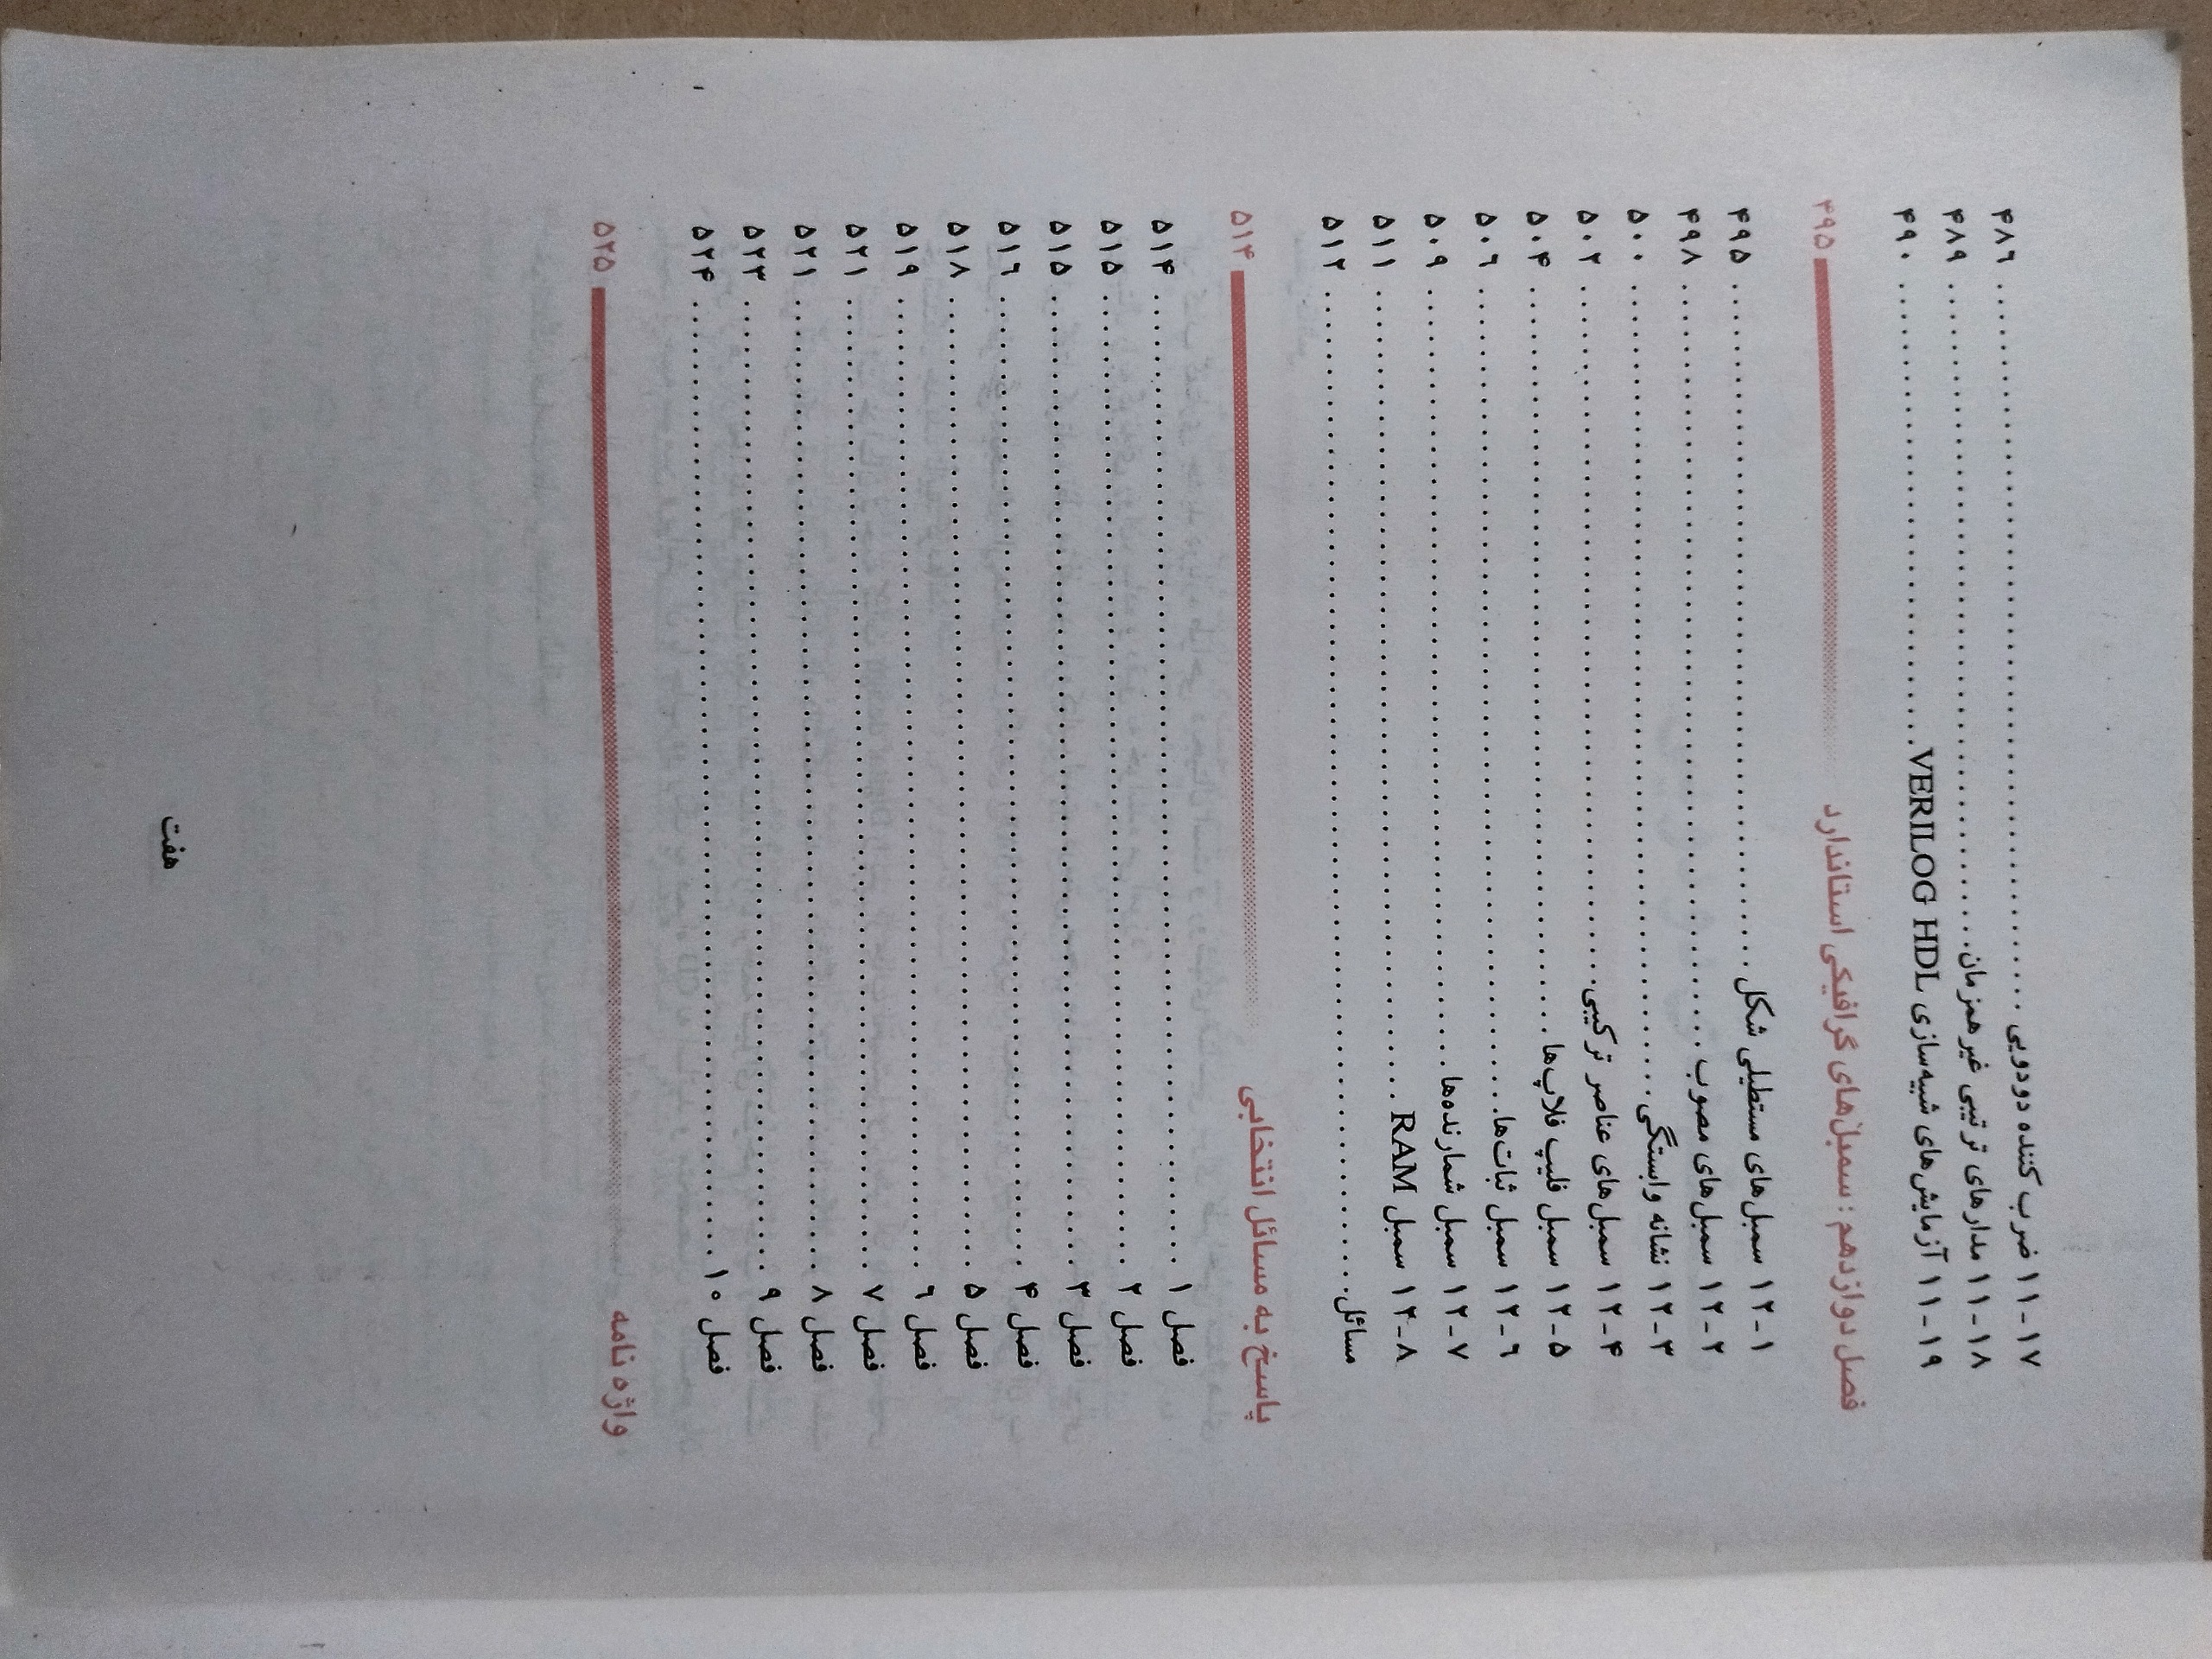 ۱۱-۱۷ ضرب کننده دودویی . . . . . ۴۸۶
۱۱-۱۸ مدارهای ترتیبی غیر همزمان . . . . . ۴۸۹
۱۱-۱۹ آزمایش‌های شبیه‌سازی VERILOG HDL . . . . . ۴۹۰
فصل دوازدهم : سمبل‌های گرافیکی استاندارد ۴۹۵
۱۲-۱ سمبل‌های مستطیلی شکل . . . . . ۴۹۵
۱۲-۲ سمبل‌های مصوب . . . . . ۴۹۸
۱۲-۳ نشانه وابستگی . . . . . ۵۰۰
۱۲-۴ سمبل‌های عناصر ترکیبی . . . . . ۵۰۲
۱۲-۵ سمبل فلیپ فلاپ‌ها . . . . . ۵۰۴
۱۲-۶ سمبل ثبات‌ها . . . . . ۵۰۶
۱۲-۷ سمبل شمارنده‌ها . . . . . ۵۰۹
۱۲-۸ سمبل RAM . . . . . ۵۱۱
مسائل . . . . . ۵۱۲
پاسخ به مسائل انتخابی ۵۱۴
فصل ۱ . . . . . ۵۱۴
فصل ۲ . . . . . ۵۱۵
فصل ۳ . . . . . ۵۱۵
فصل ۴ . . . . . ۵۱۶
فصل ۵ . . . . . ۵۱۸
فصل ۶ . . . . . ۵۱۹
فصل ۷ . . . . . ۵۲۱
فصل ۸ . . . . . ۵۲۱
فصل ۹ . . . . . ۵۲۳
فصل ۱۰ . . . . . ۵۲۴
واژه نامه ۵۲۵
هفت